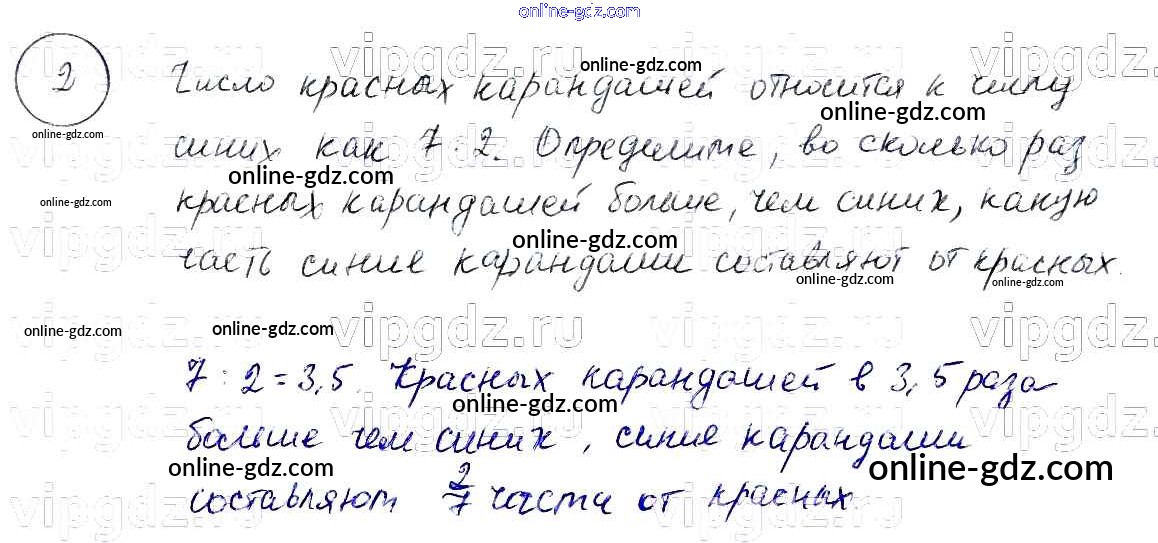 online-gdz.com
vipgdz.ru vipgdz.ru vipgdz.ru vipgdz.ru
2 Число красных карандашей относится к числу
online-gdz.com online-gdz.com
синих как 7 : 2. Определите, во сколько раз
online-gdz.com
красных карандашей больше, чем синих, какую
online-gdz.com online-gdz.com
часть синие карандаши составляют от красных.
online-gdz.com online-gdz.com
online-gdz.com online-gdz.com online-gdz.com
vipgdz.ru vipgdz.ru vipgdz.ru vipgdz.ru
7 : 2 = 3,5. Красных карандашей в 3,5 раза
online-gdz.com
больше чем синих, синие карандаши
online-gdz.com online-gdz.com
составляют 2/7 части от красных.
vipgdz.ru vipgdz.ru vipgdz.ru vipgdz.ru